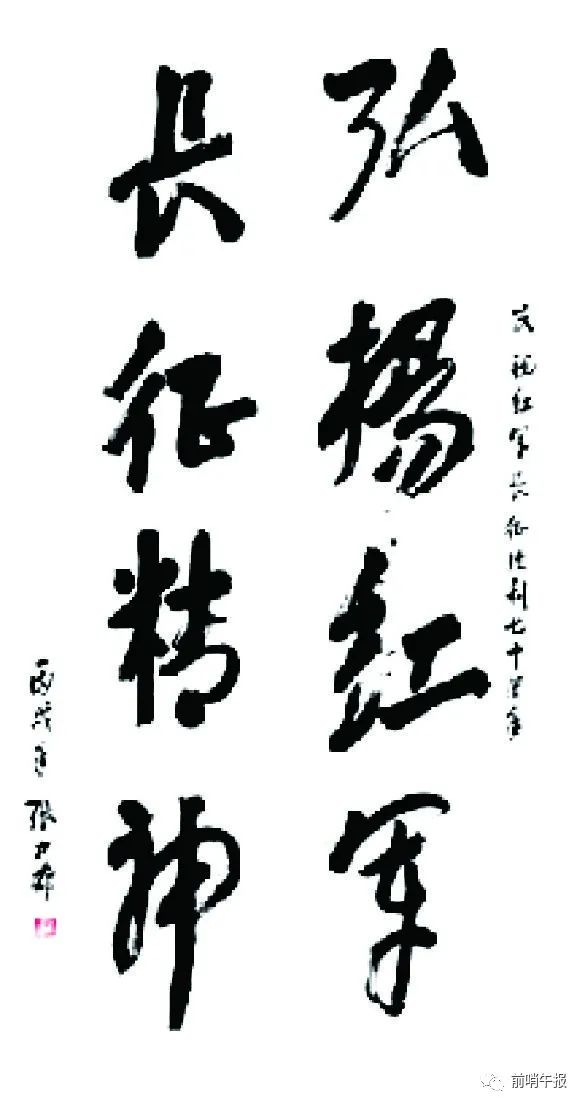 庆祝红军长征胜利七十周年
弘揚红军
長征精神
丙戌年 张
前哨午报